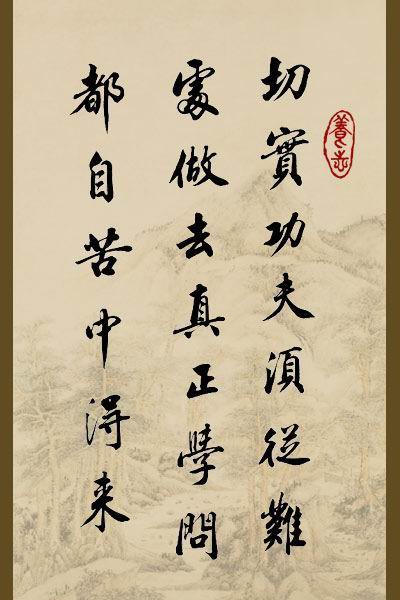 切實功夫須從難
處做去真正學問
都自苦中得来
養志